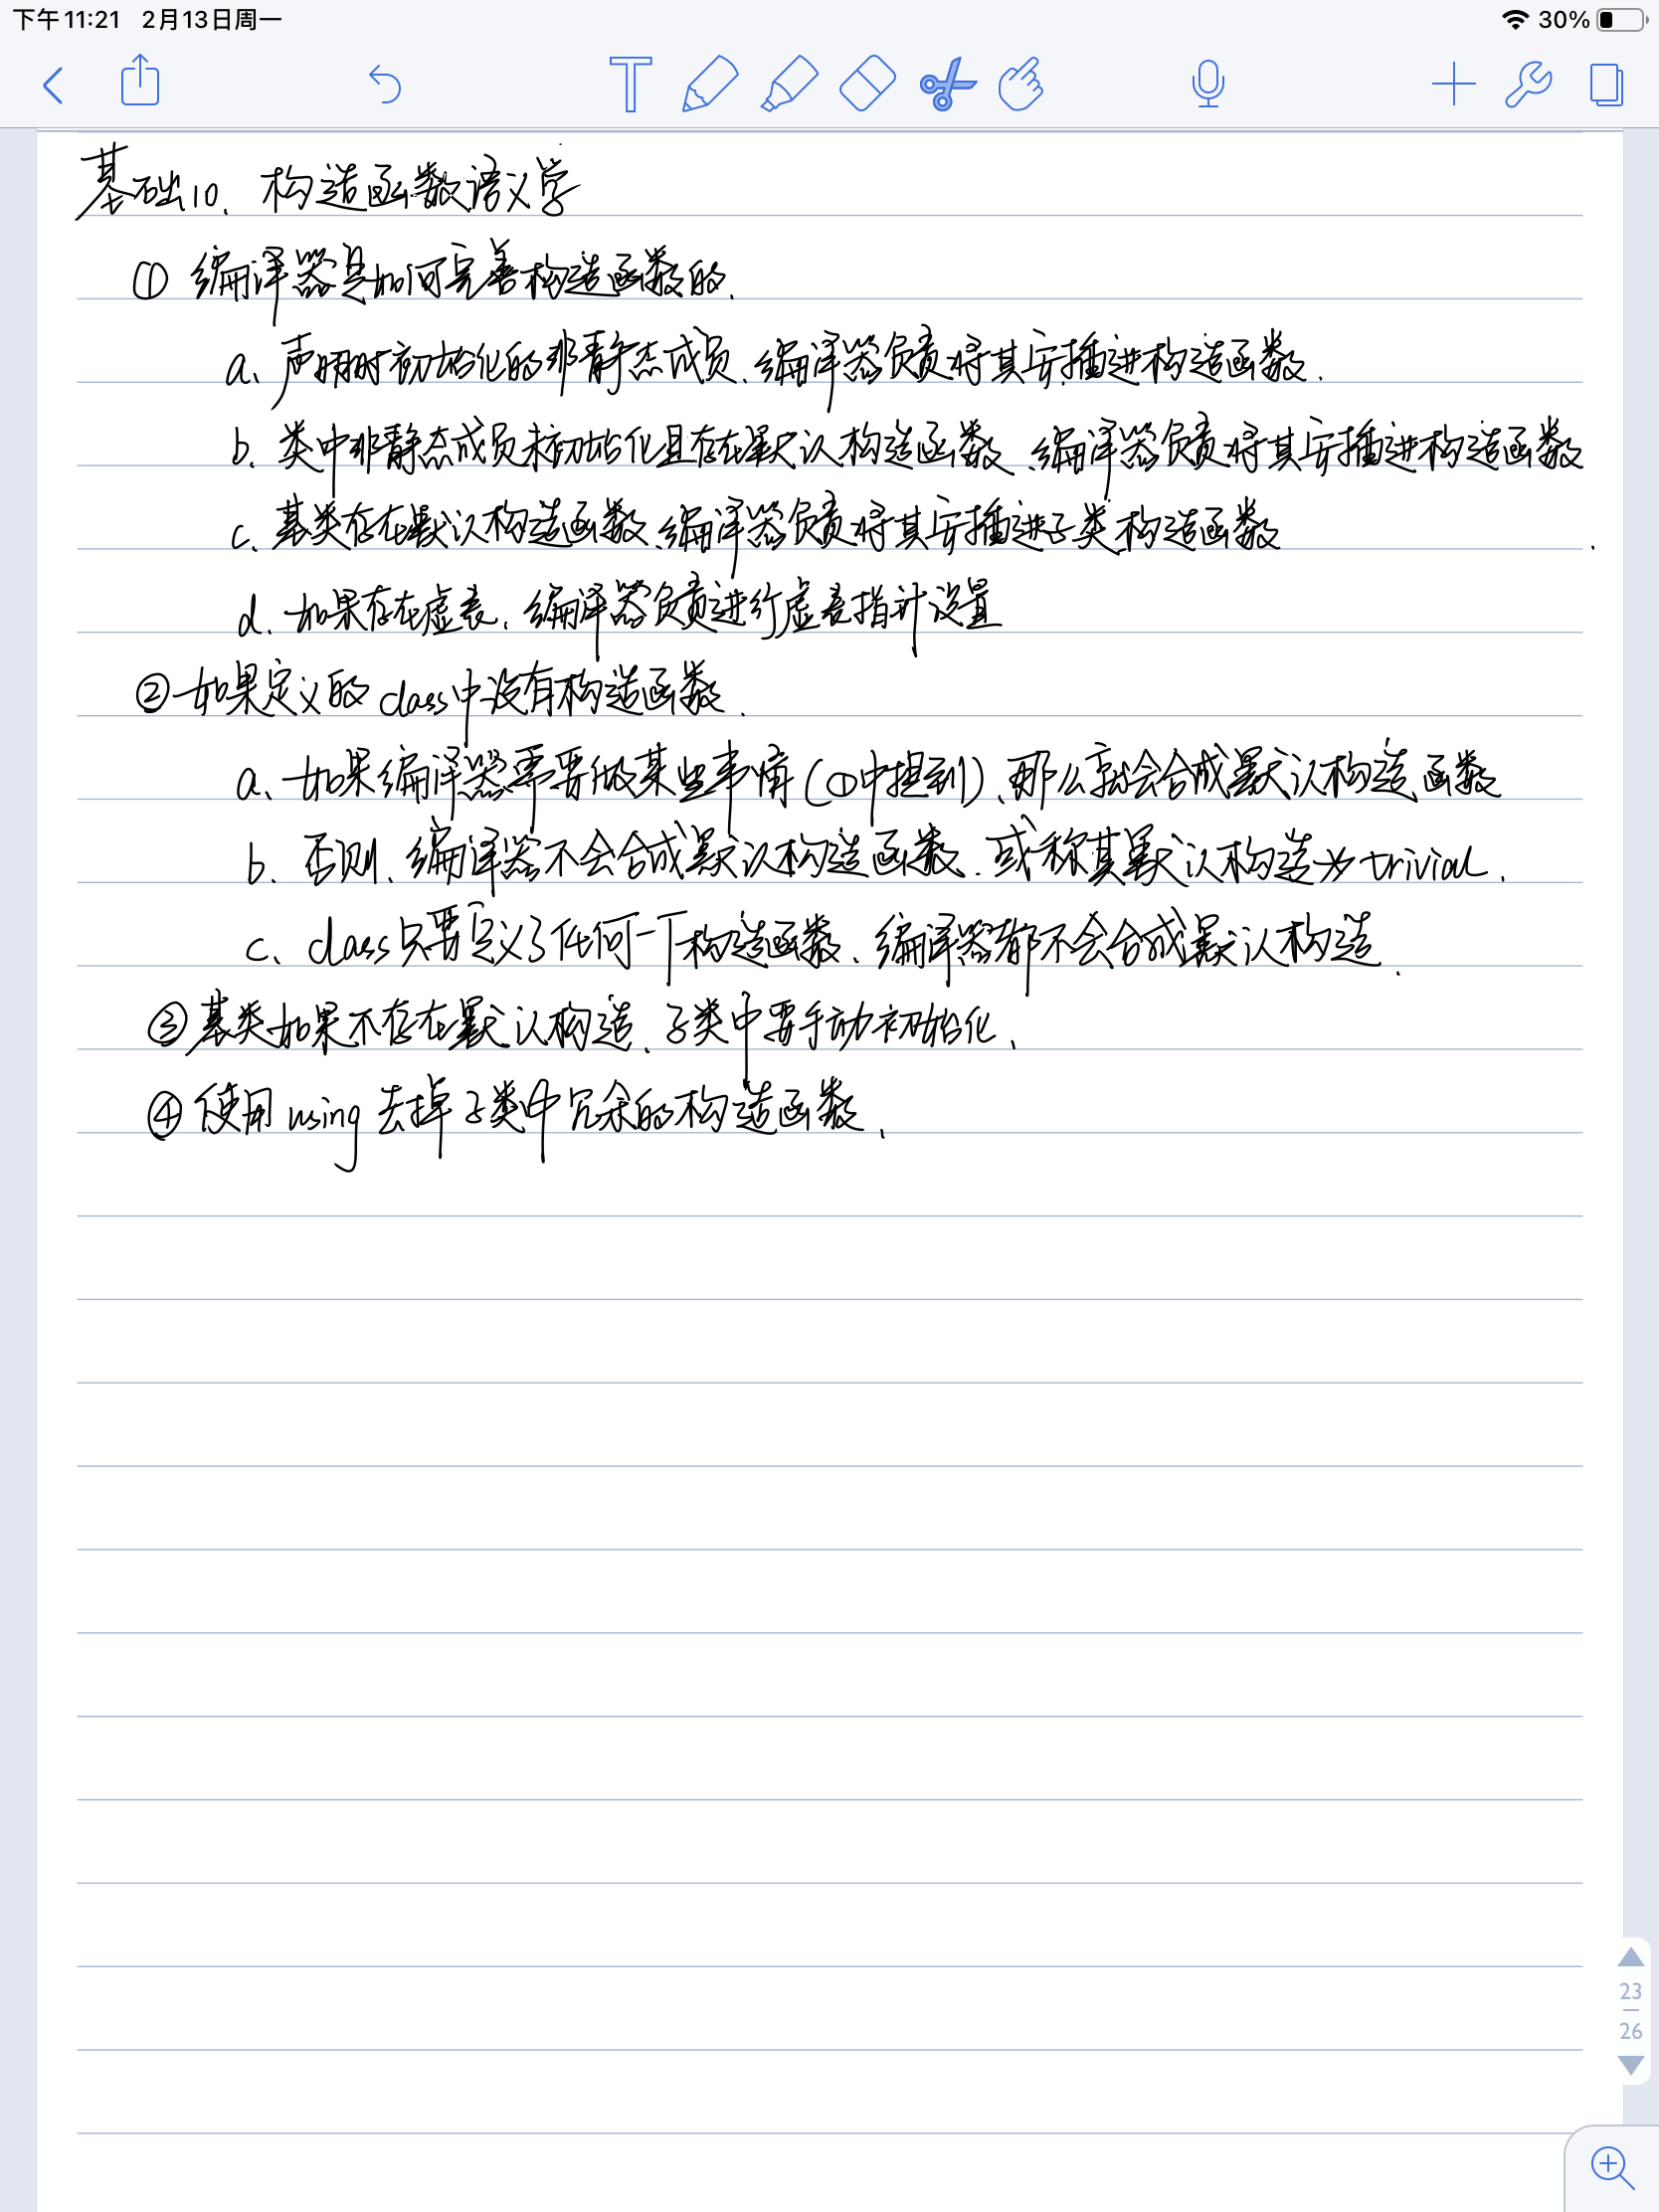 下午11:21 2月13日周一 30%
基础10、构造函数语义学
① 编译器是如何完善构造函数的.
a、声明时初始化的非静态成员、编译器负责将其安插进构造函数.
b. 类中非静态成员未初始化且存在默认构造函数、编译器负责将其安插进构造函数
c、基类存在默认构造函数、编译器负责将其安插进子类构造函数
d、如果存在虚表、编译器负责进行虚表指针设置
② 如果定义的class中没有构造函数.
a、如果编译器需要做某些事情(①中提到)、那么就会合成默认构造函数
b. 否则、编译器不会合成默认构造函数. 或称其默认构造为trivial.
c、class只要定义了任何一个构造函数、编译器都不会合成默认构造、
③ 基类如果不存在默认构造、子类中要手动初始化、
④ 使用using去掉子类中冗余的构造函数、
23
26